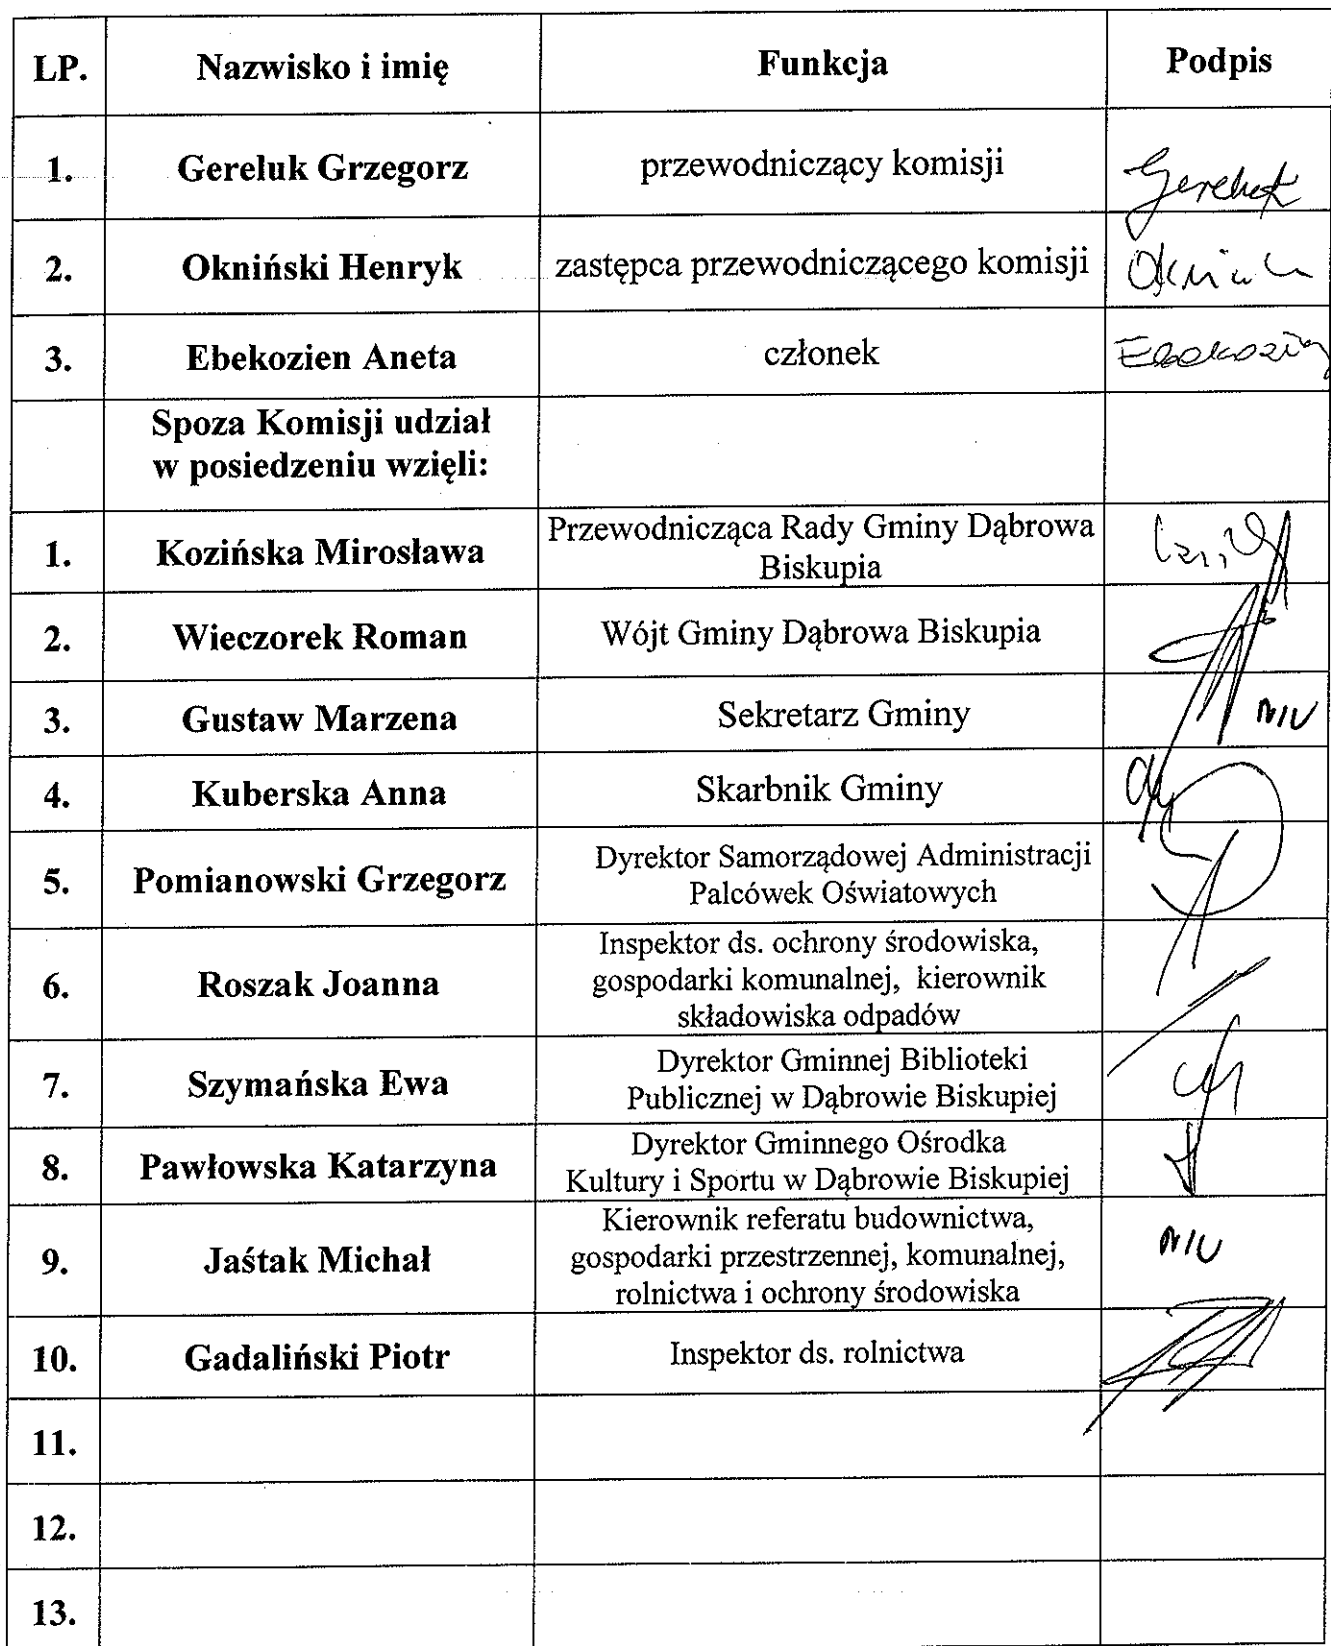 LP. Nazwisko i imię Funkcja Podpis
1. Gereluk Grzegorz przewodniczący komisji Gereluk
2. Okniński Henryk zastępca przewodniczącego komisji
3. Ebekozien Aneta członek Ebekozien
Spoza Komisji udział
w posiedzeniu wzięli:
1. Kozińska Mirosława Przewodnicząca Rady Gminy Dąbrowa
Biskupia
2. Wieczorek Roman Wójt Gminy Dąbrowa Biskupia
3. Gustaw Marzena Sekretarz Gminy
4. Kuberska Anna Skarbnik Gminy
5. Pomianowski Grzegorz Dyrektor Samorządowej Administracji
Palcówek Oświatowych
6. Roszak Joanna Inspektor ds. ochrony środowiska,
gospodarki komunalnej, kierownik
składowiska odpadów
7. Szymańska Ewa Dyrektor Gminnej Biblioteki
Publicznej w Dąbrowie Biskupiej
8. Pawłowska Katarzyna Dyrektor Gminnego Ośrodka
Kultury i Sportu w Dąbrowie Biskupiej
9. Jaśtak Michał Kierownik referatu budownictwa,
gospodarki przestrzennej, komunalnej,
rolnictwa i ochrony środowiska
10. Gadaliński Piotr Inspektor ds. rolnictwa
11.
12.
13.